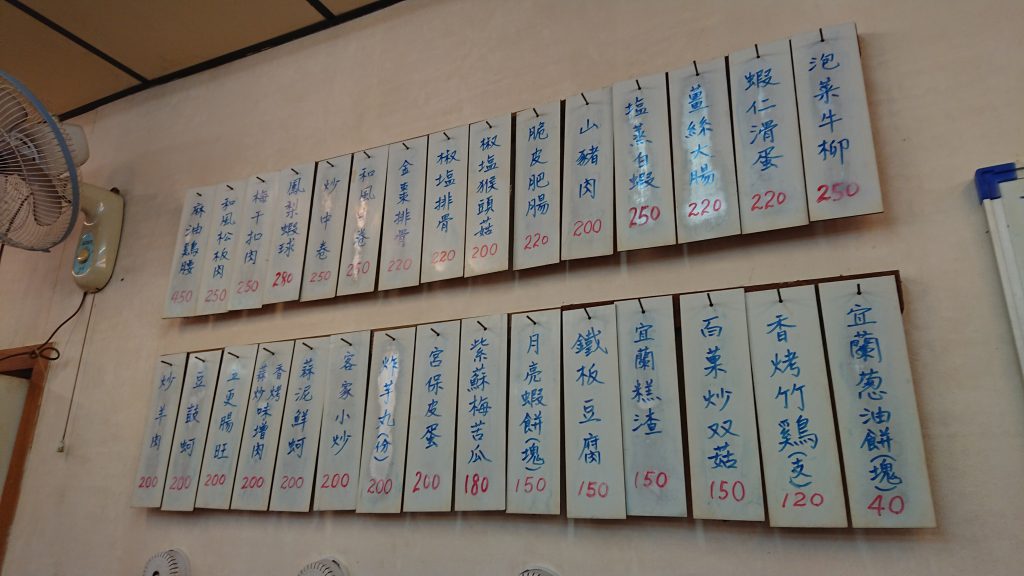 泡菜牛柳 250
蝦仁滑蛋 220
薑絲大腸 220
塩蒸白蝦 250
山豬肉 200
脆皮肥腸 220
椒塩猴頭菇 200
椒塩排骨 220
金棗排骨 220
和風卷 250
炒中卷 250
鳳梨蝦球 280
梅干扣肉 250
和風松板肉 250
麻油鷄腰 450
宜蘭葱油餅(塊) 40
香烤竹鷄(支) 120
百菓炒双菇 150
宜蘭糕渣 150
鐵板豆腐 150
月亮蝦餅(塊) 150
紫蘇梅苦瓜 180
宮保皮蛋 200
炸芋丸(份) 200
客家小炒 200
蒜泥鮮蚵 200
香烤
蒜炒味增肉 200
五更腸旺 200
豆鼓蚵 200
炒羊肉 200